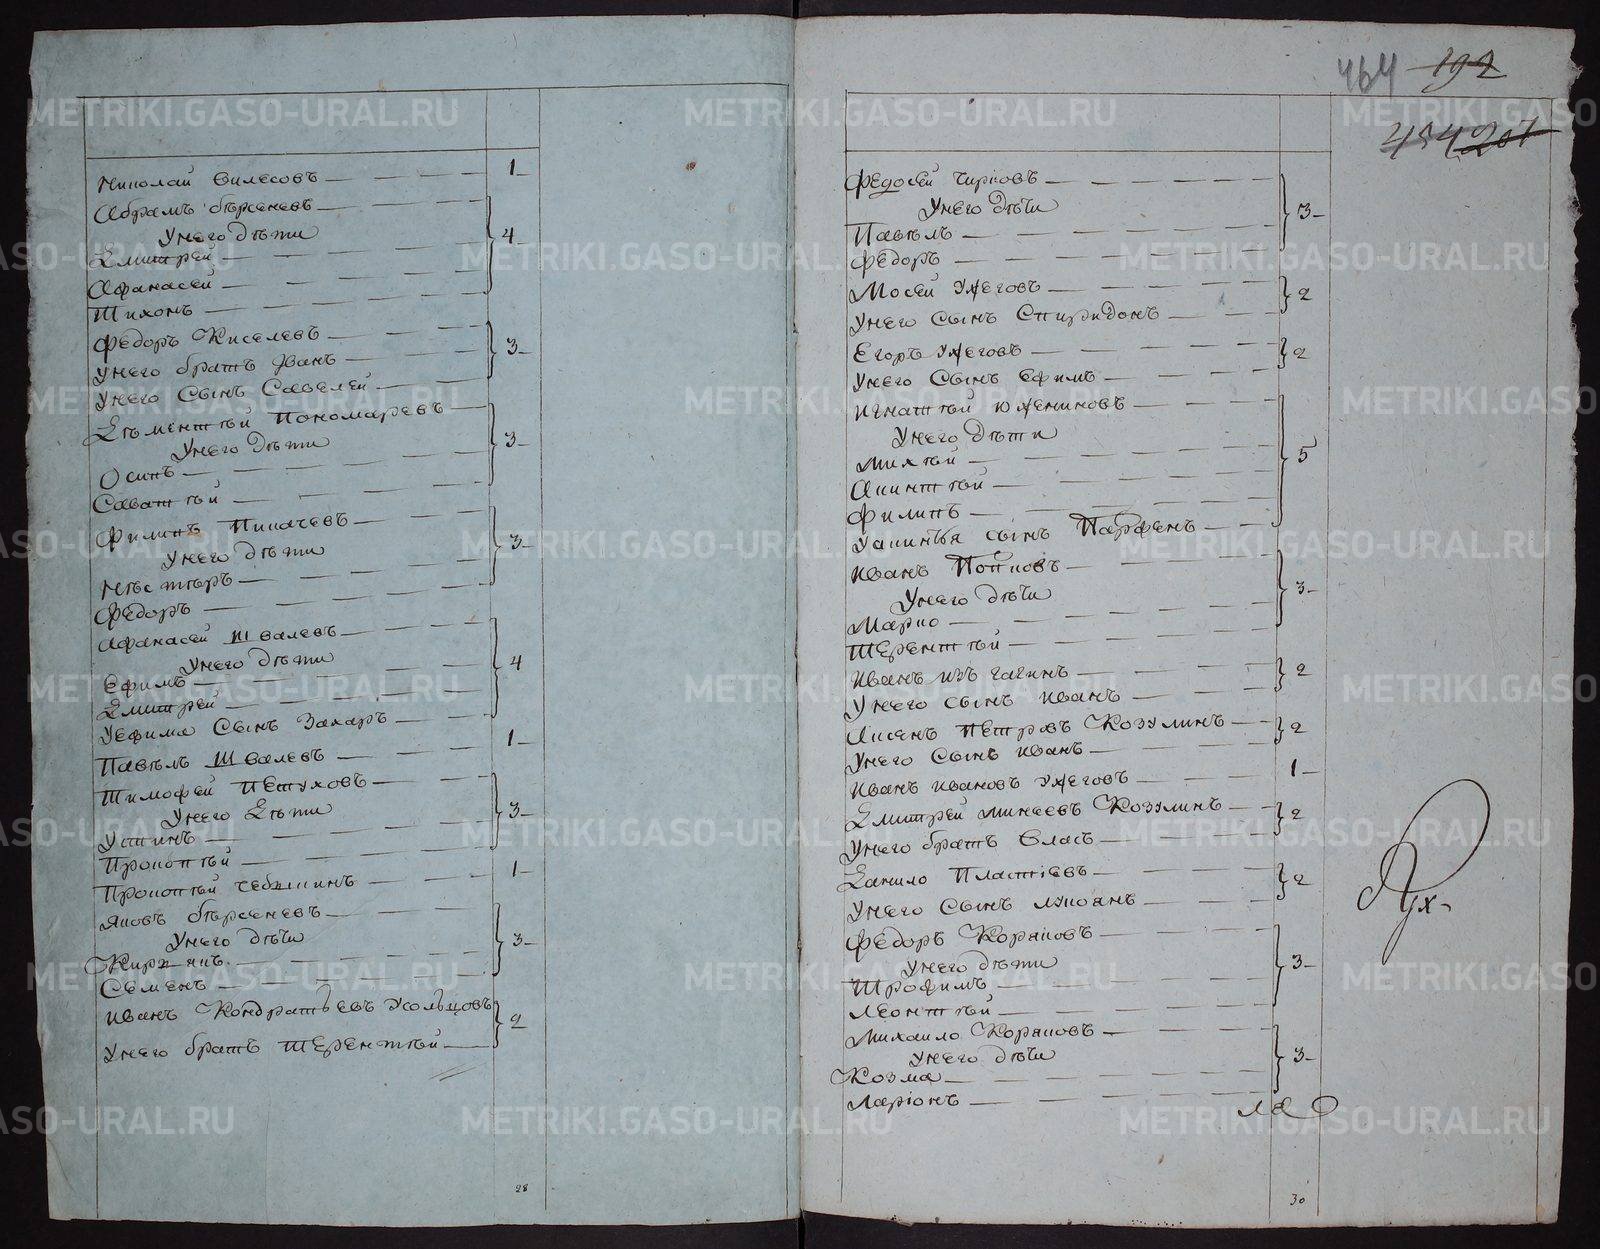 Николай Вилесовъ 1
Абрамъ бѣрсеневъ
Унего дѣти 4
Дмитрей
Афанасей
Тихонъ
Федоръ Киселевъ
Унего братъ Иванъ 3
Унего Сынъ Савелей
Дѣментѣй Пономаревъ
Унего дѣти 3
Осипъ
Саватѣй
Филипъ Пикачевъ
Унего дѣти 3
Нѣстѣръ
Федоръ
Афанасей Швалевъ
Унего дѣти 4
Ефимъ
Дмитрей
Уефима Сынъ Захаръ
Павѣлъ Швалевъ 1
Тимофей Петуховъ
Унего Дѣти 3
Устинъ
Прокопѣй
Прокопѣй 1
Яковъ бѣрсеневъ
Унего дѣти 3
Семенъ
Иванъ Кондратьевъ Усольцовъ
Унего братъ Терентѣй 2
28
464 192
454 201
Федосей Чирковъ
Унего дѣти 3
Павѣлъ
Федоръ
Мосей Ужеговъ 2
Унего Сынъ Спиридонъ
Егоръ Ужеговъ 2
Унего Сынъ Ефимъ
Игнатѣй Южениновъ
Унего дѣти
Михѣй 5
Акинтѣй
Филипъ
Сынъ Парфенъ
Иванъ Попковъ
Унего дѣти 3
Марко
Терентѣй
Иванъ 2
Унего сынъ Иванъ
Аксенъ Петровъ Козулинъ 2
Унего Сынъ Иванъ
Иванъ Ивановъ Ужеговъ 1
Дмитрей Минеевъ Козулинъ 2
Унего братъ Власъ
Данило Пластѣевъ 2
Унего Сынъ Лукоянъ
Федоръ Кораковъ
Унего дѣти 3
Трофимъ
Леонтѣй
Михаило Кораковъ
Унего дѣти 3
Козма
Ларіонъ
30
METRIKI.GASO-URAL.RU